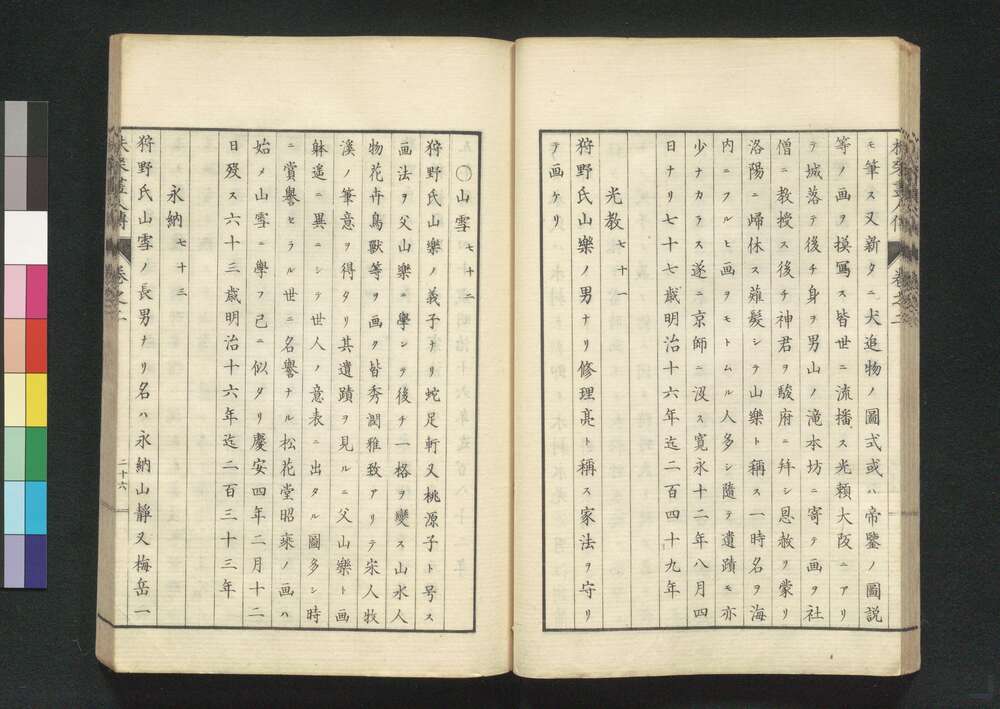 モ筆ス又新タニ犬追物ノ圖式或ハ帝鑒ノ圖説
等ノ画ヲ摸冩ス皆世ニ流播ス光頼大阪ニアリ
テ城落テ後チ身ヲ男山ノ滝本坊ニ寄テ画ヲ社
僧ニ教授ス後チ神君ヲ駿府ニ拜シ恩赦ヲ蒙リ
洛陽ニ歸休ス薙髮シテ山樂ト稱ス一時名ヲ海
内ニフルヒ画ヲモトムル人多シ隨テ遺蹟モ亦
少ナカラス遂ニ京師ニ沒ス寛永十二年八月四
日ナリ七十七歳明治十六年迄二百四十九年
光教 七十一
狩野氏山樂ノ男ナリ修理亮ト稱ス家法ヲ守リ
テ画ケリ
〇山雪 七十二
狩野氏山樂ノ義子ナリ蛇足軒又桃源子ト号ス
画法ヲ父山樂ニ學ンテ後チ一格ヲ變ス山水人
物花卉鳥獸等ヲ画ク皆秀潤雅致アリテ宋人牧
溪ノ筆意ヲ得タリ其遺蹟ヲ見ルニ父山樂ト画
躰遥ニ異ニシテ世人ノ意表ニ出タル圖多シ時
ニ賞譽セラル世ニ名譽ナル松花堂昭乗ノ画ハ
始メ山雪ニ學フ己ニ似タリ慶安四年二月十二
日歿ス六十三歳明治十六年迄二百三十三年
永納 七十三
狩野氏山雪ノ長男ナリ名ハ永納山靜又梅岳一
卷之二
二十六